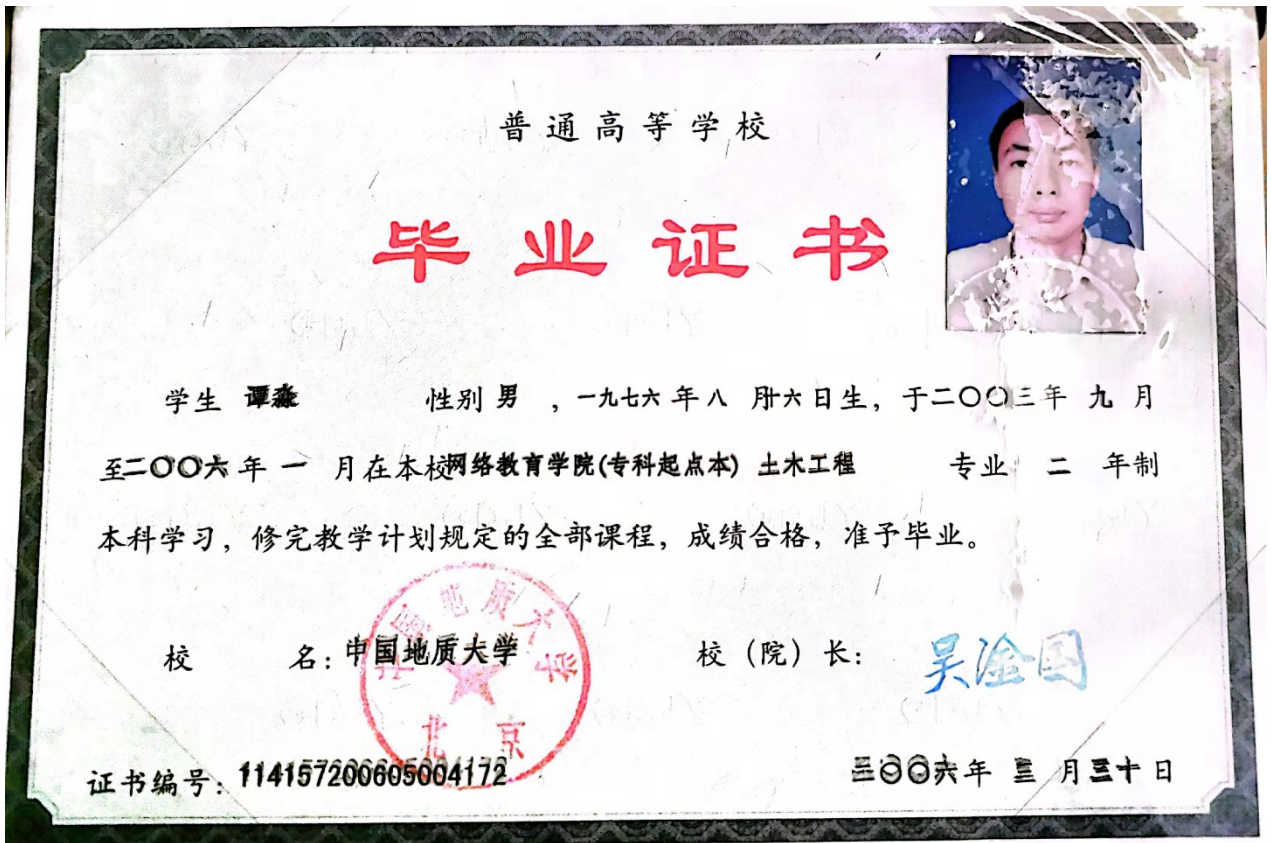 普通高等学校
毕业证书
学生 谭淼 性别 男 ，一九七六 年 八 月十六日生，于二〇〇三年 九 月
至二〇〇六年 一 月在本校网络教育学院(专科起点本) 土木工程 专业 二 年制
本科学习，修完教学计划规定的全部课程，成绩合格，准予毕业。
校 名：中国地质大学 校（院）长： 吴淦国
中国地质大学
北京
证书编号：114157200605004172 二〇〇六年 月 十日